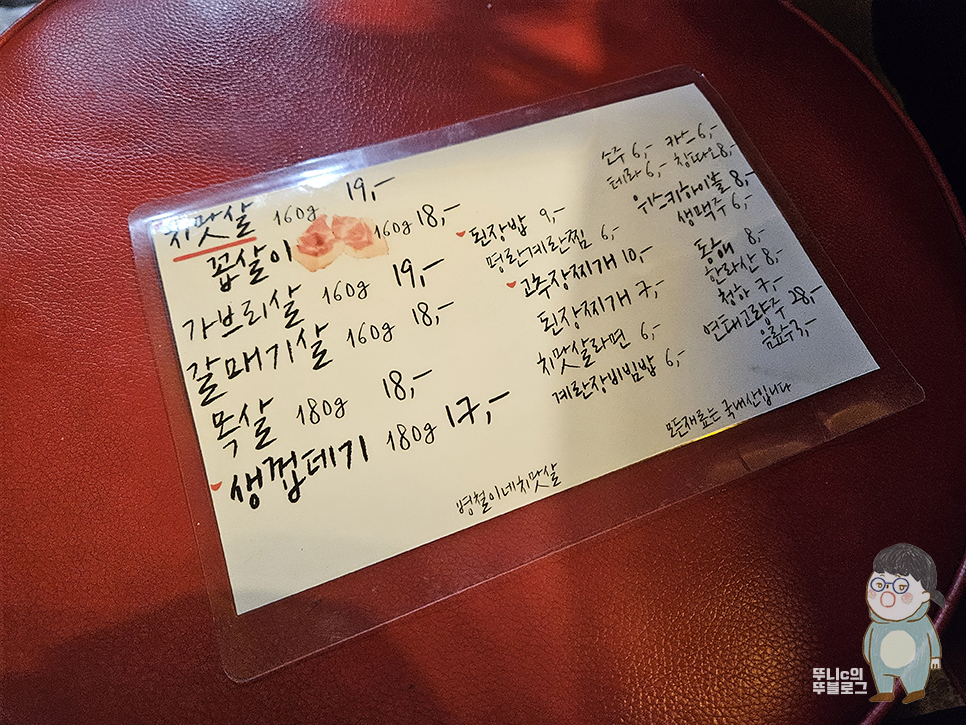 치맛살 160g 19,-
꼽살이 160g 18,-
가브리살 160g 19,-
갈매기살 160g 18,-
목살 180g 18,-
생껍데기 180g 17,-
된장밥 9,-
명란계란찜 6,-
고추장찌개 10,-
된장찌개 7,-
치맛살라면 6,-
계란장비빔밥 6,-
소주 6,- 카스 6,-
테라 6,- 칭따오 8,-
위스키하이볼 8,-
생맥주 6,-
동해 8,-
한라산 8,-
청하 7,-
연태고량주 28,-
음료수 3,-
모든재료는 국내산입니다
병철이네치맛살
뚜니c의
뚜블로그